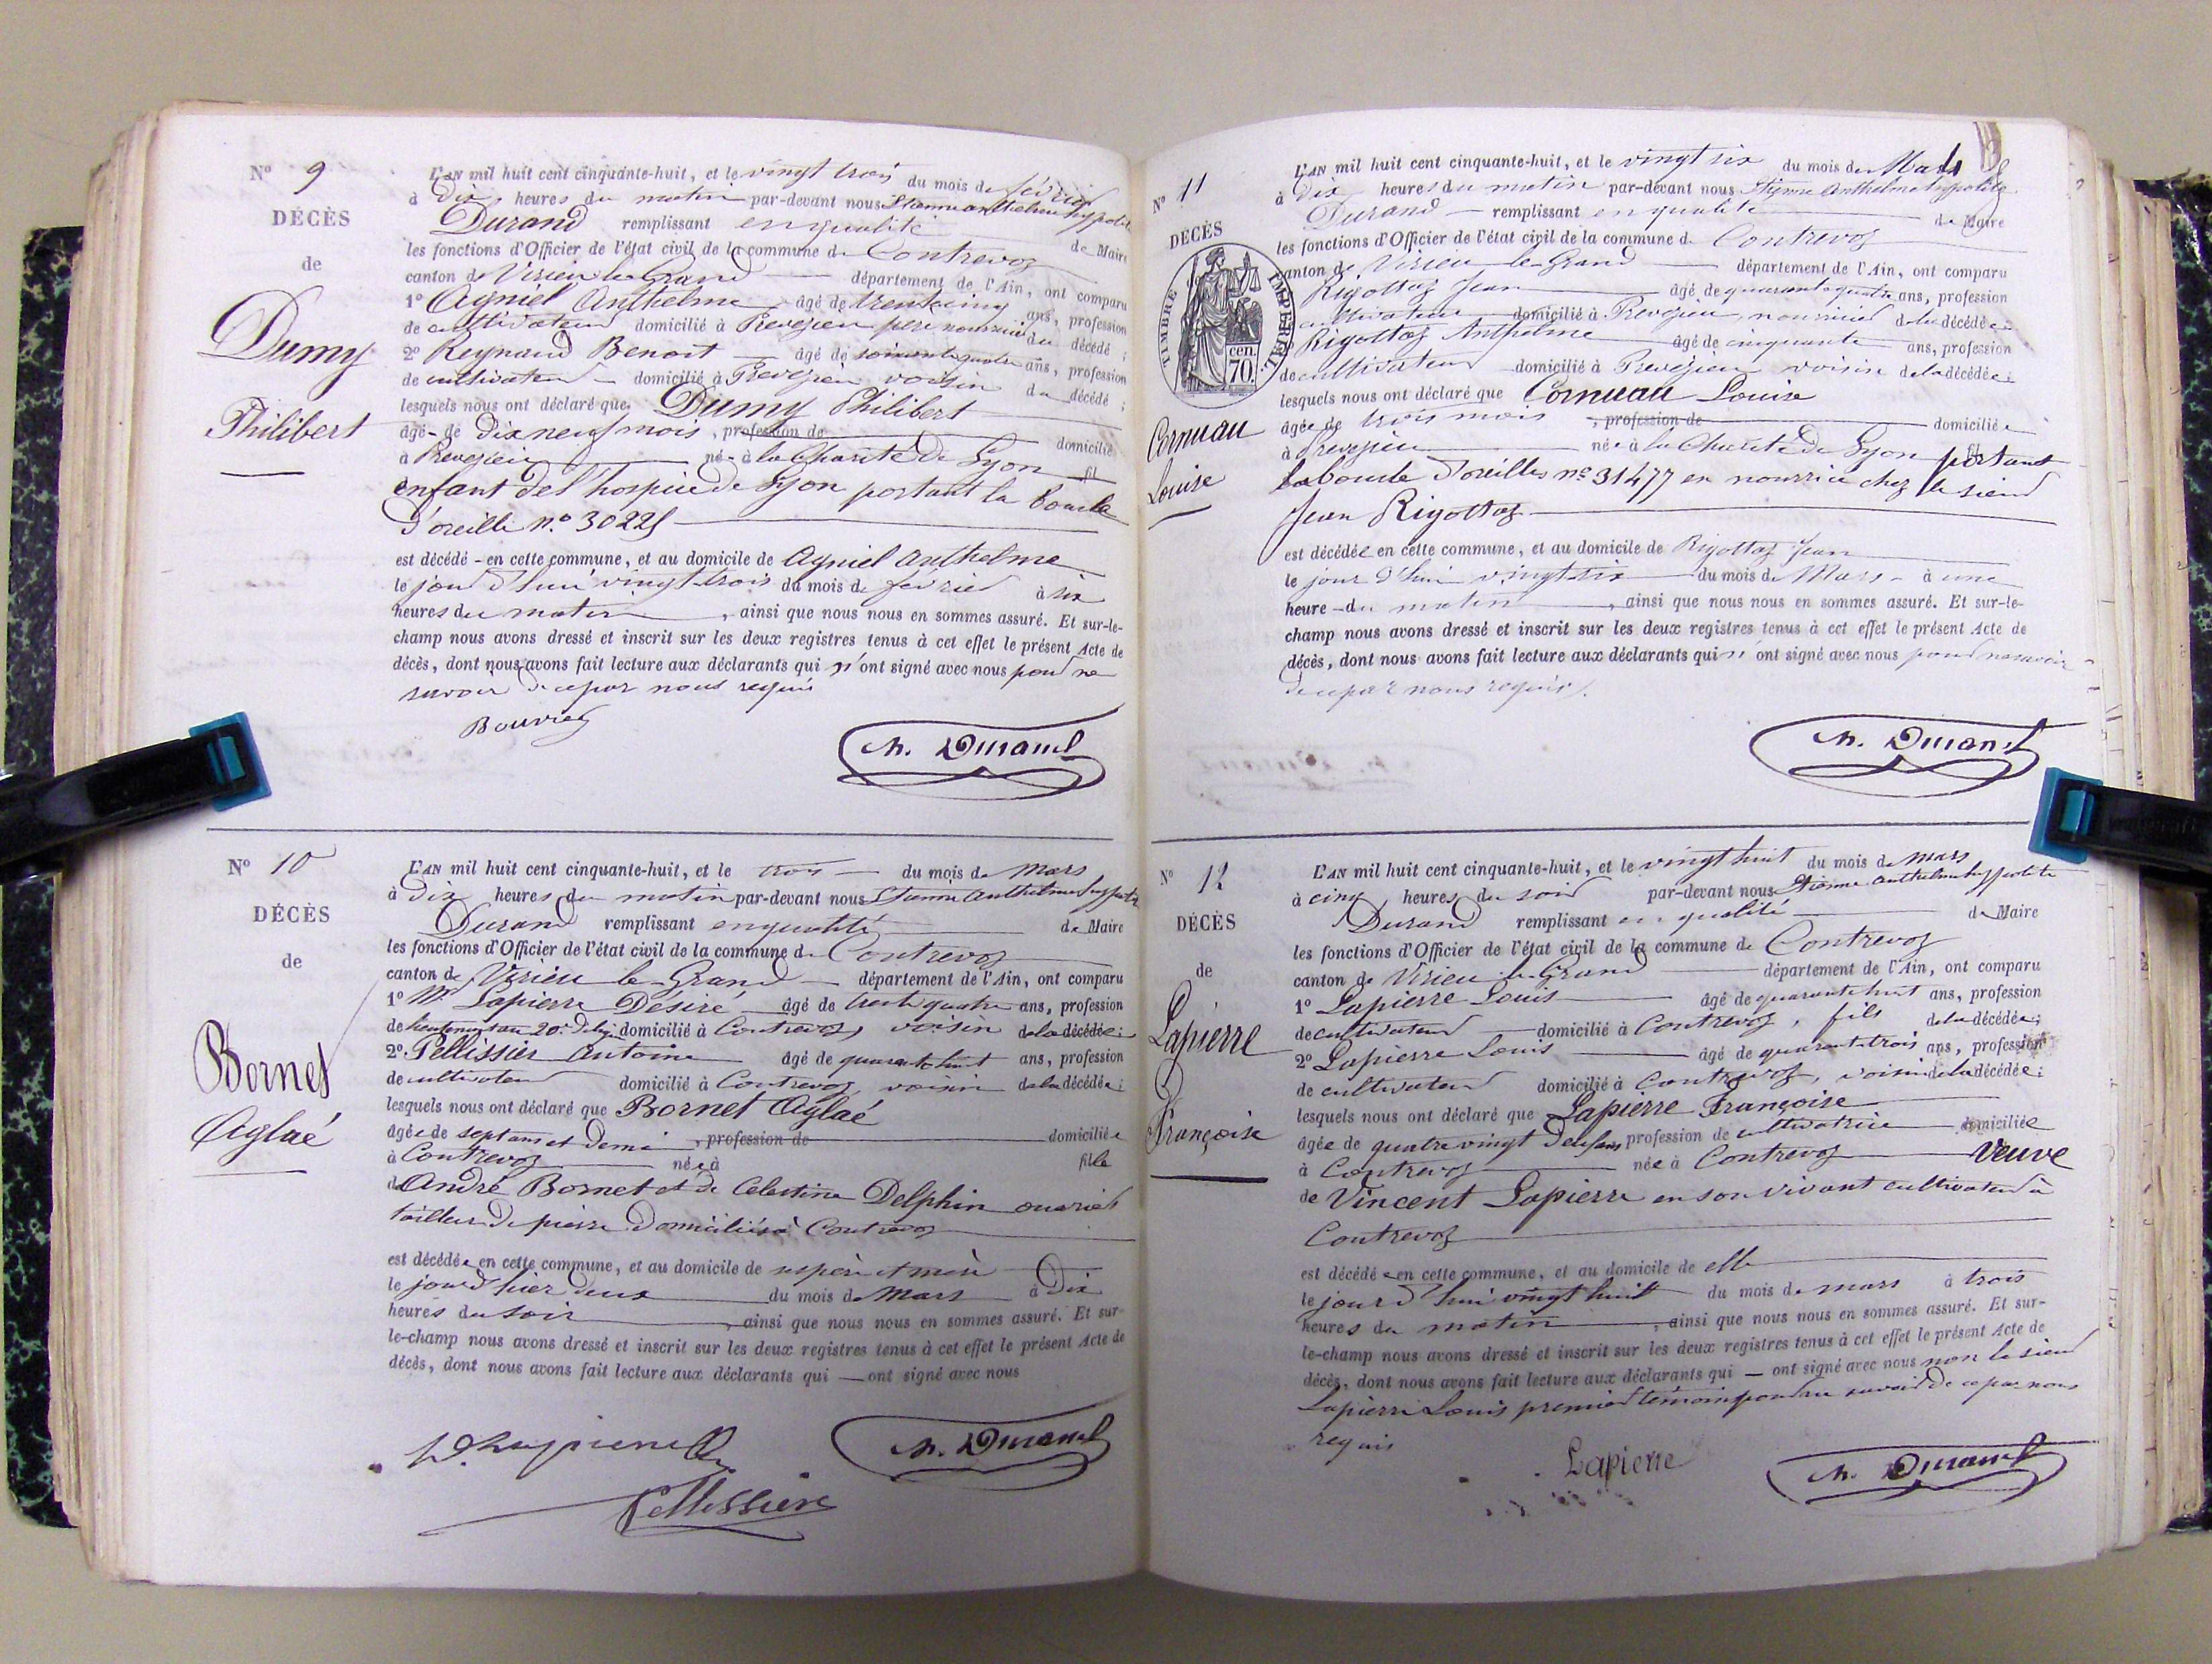 N° 9
DÉCÈS
de
Dumy
Philibert
L'AN mil huit cent cinquante-huit, et le vingt trois du mois de février
à Dix heures du matin par-devant nous Etienne anthelme hyppolite
Durand remplissant en qualité de Maire
les fonctions d'Officier de l'état civil de la commune de Contrevoz
canton de Virieu le Grand département de l'Ain, ont comparu
1° Agniel Anthelme âgé de trente cinq ans, profession
de cultivateur domicilié à Prevezieu père nourricier du décédé ;
2° Reynaud Benoit âgé de soixante quatre ans, profession
de cultivateur domicilié à Prevezieu voisin du décédé ;
lesquels nous ont déclaré que Dumy Philibert
âgé de Dix neuf mois, profession de domicilié
à Prevezieu né à la Charité de Lyon fil
enfant de l'hospice de Lyon portant la boucle
d'oreille n.° 30225
est décédé en cette commune, et au domicile de Agniel Anthelme
le jour d'hui vingt-trois du mois de février à six
heures du matin, ainsi que nous nous en sommes assuré. Et sur-le-
champ nous avons dressé et inscrit sur les deux registres tenus à cet effet le présent Acte de
décès, dont nous avons fait lecture aux déclarants qui n'ont signé avec nous pour ne
savoir de ce par nous requis
Bouvier
h. Durand
N° 10
DÉCÈS
de
Bornet
Aglaé
L'AN mil huit cent cinquante-huit, et le trois du mois de Mars
à Dix heures du matin par-devant nous Etienne anthelme hyppolite
Durand remplissant en qualité de Maire
les fonctions d'Officier de l'état civil de la commune de Contrevoz
canton de Virieu le Grand département de l'Ain, ont comparu
1° Mr Lapierre Desiré âgé de trente quatre ans, profession
de lieutenant au 20e domicilié à Contrevoz, voisin de la décédée ;
2° Pellissier Antoine âgé de quarante huit ans, profession
de cultivateur domicilié à Contrevoz voisin de la décédée ;
lesquels nous ont déclaré que Bornet Aglaé
âgée de sept ans et demi, profession de domiciliée
à Contrevoz née à fille
de André Bornet et de Celestine Delphin ouvrier
tailleur de pierre domiciliés à Contrevoz
est décédée en cette commune, et au domicile de ses père et mère
le jour d'hier deux du mois de Mars à Dix
heures du soir, ainsi que nous nous en sommes assuré. Et sur-
le-champ nous avons dressé et inscrit sur les deux registres tenus à cet effet le présent Acte de
décès, dont nous avons fait lecture aux déclarants qui ont signé avec nous
D. Lapierre
Pellissier
h. Durand
N° 11
DÉCÈS
TIMBRE IMPÉRIAL
cen.
70.
Cornuau
Louise
L'AN mil huit cent cinquante-huit, et le vingt six du mois de Mars
à Dix heures du matin par-devant nous Etienne Anthelme hyppolite
Durand remplissant en qualité de Maire
les fonctions d'Officier de l'état civil de la commune de Contrevoz
canton de Virieu le Grand département de l'Ain, ont comparu
Rigottaz Jean âgé de quarante quatre ans, profession
cultivateur domicilié à Prevezieu, nourricier de la décédée
Rigottaz Anthelme âgé de cinquante ans, profession
de cultivateur domicilié à Prevezieu voisin de la décédée ;
lesquels nous ont déclaré que Cornuau Louise
âgée de trois mois, profession de domiciliée
à Prevezieu née à la Charité de Lyon portant
la boucle d'oreilles n° 31477 en nourrice chez le sieur
Jean Rigottaz
est décédée en cette commune, et au domicile de Rigottaz Jean
le jour d'hui vingt six du mois de Mars à une
heure du matin, ainsi que nous nous en sommes assuré. Et sur-le-
champ nous avons dressé et inscrit sur les deux registres tenus à cet effet le présent Acte de
décès, dont nous avons fait lecture aux déclarants qui n'ont signé avec nous pour ne savoir
de ce par nous requis.
h. Durand
N° 12
DÉCÈS
de
Lapierre
Françoise
L'AN mil huit cent cinquante-huit, et le vingt huit du mois de mars
à cinq heures du soir par-devant nous Etienne anthelme hyppolite
Durand remplissant en qualité de Maire
les fonctions d'Officier de l'état civil de la commune de Contrevoz
canton de Virieu le Grand département de l'Ain, ont comparu
1° Lapierre Louis âgé de quarante huit ans, profession
de cultivateur domicilié à Contrevoz, fils de la décédée ;
2° Lapierre Louis âgé de quarante trois ans, profession
de cultivateur domicilié à Contrevoz, voisin de la décédée ;
lesquels nous ont déclaré que Lapierre Françoise
âgée de quatre vingt deux ans profession de cultivatrice domiciliée
à Contrevoz née à Contrevoz Veuve
de Vincent Lapierre en son vivant cultivateur à
Contrevoz
est décédée en cette commune, et au domicile de elle
le jour d'hui vingt huit du mois de mars à trois
heures du matin, ainsi que nous nous en sommes assuré. Et sur-
le-champ nous avons dressé et inscrit sur les deux registres tenus à cet effet le présent Acte de
décès, dont nous avons fait lecture aux déclarants qui ont signé avec nous non le sieur
Lapierre Louis premier témoin pour ne savoir de ce par nous
requis
Lapierre
h. Durand